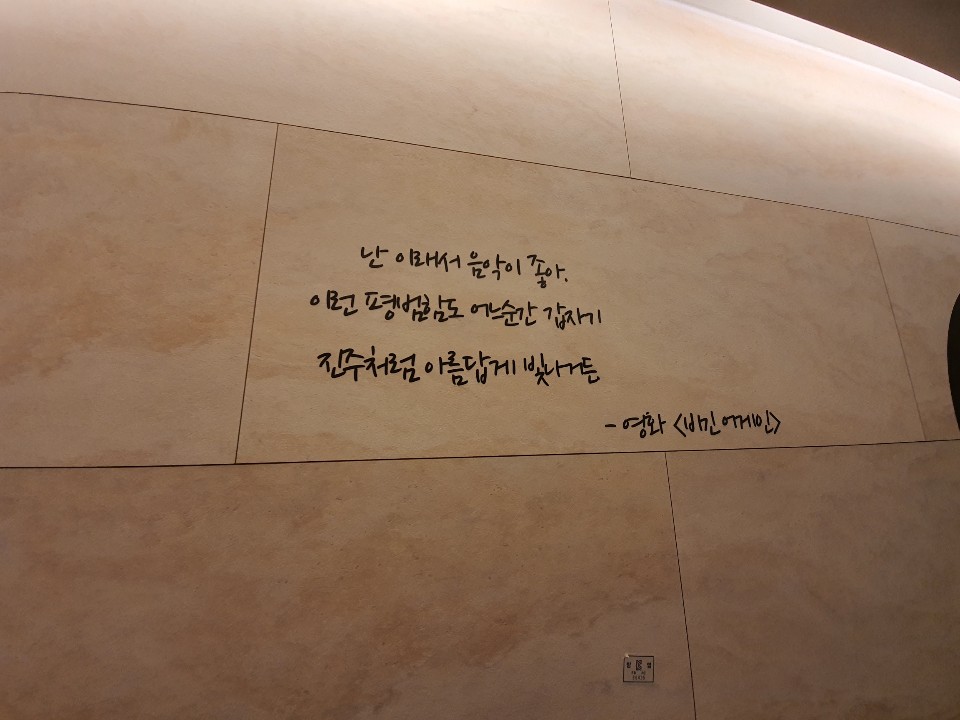 난 이래서 음악이 좋아.
이런 평범함도 어느순간 갑자기
진주처럼 아름답게 빛나거든
- 영화 <비긴어게인>